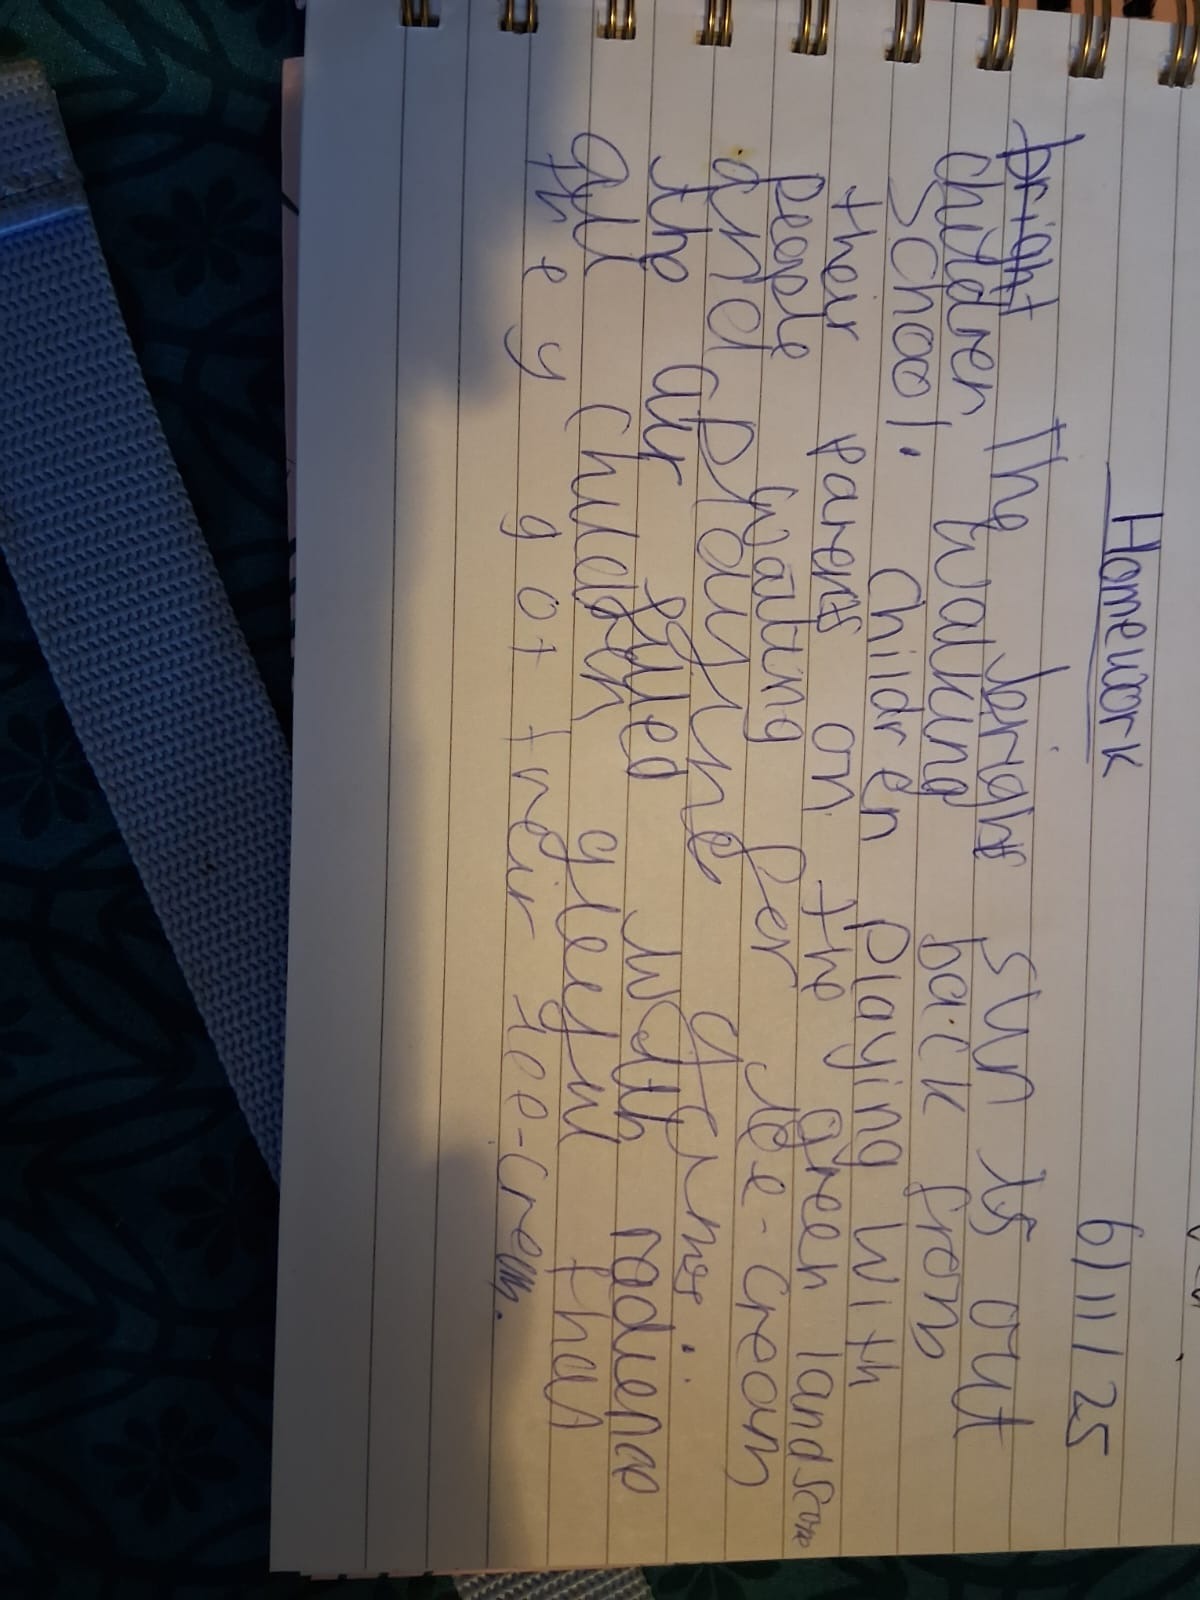 Homework 6/11/25
bright The bright sun is out
children walking back from
school. Children playing with
their parents on the green landscape
people waiting for ice-cream
and playing
the air filled with
all children gleeful that
they got their ice-cream.